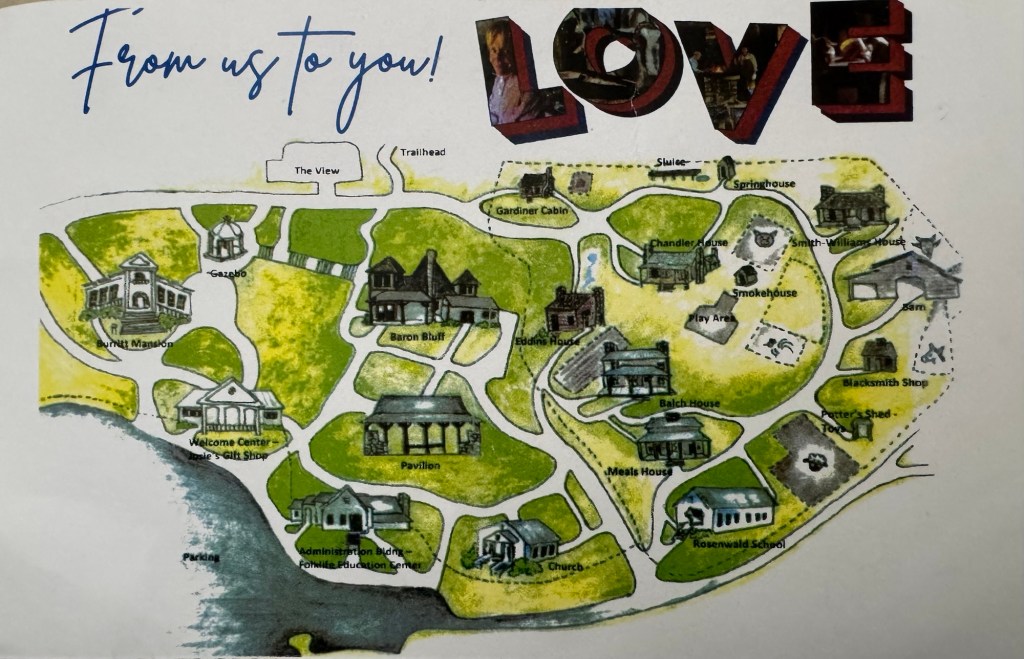 From us to you!
LOVE
The View
Trailhead
Sluice
Springhouse
Gardiner Cabin
Gazebo
Chandler House
Smith-Williams House
Smokehouse
Barn
Play Area
Burritt Mansion
Baron Bluff
Eddins House
Blacksmith Shop
Balch House
Potter's Shed -
Toys
Welcome Center –
Josie's Gift Shop
Pavilion
Meals House
Rosenwald School
Parking
Administration Bldng –
Folklife Education Center
Church